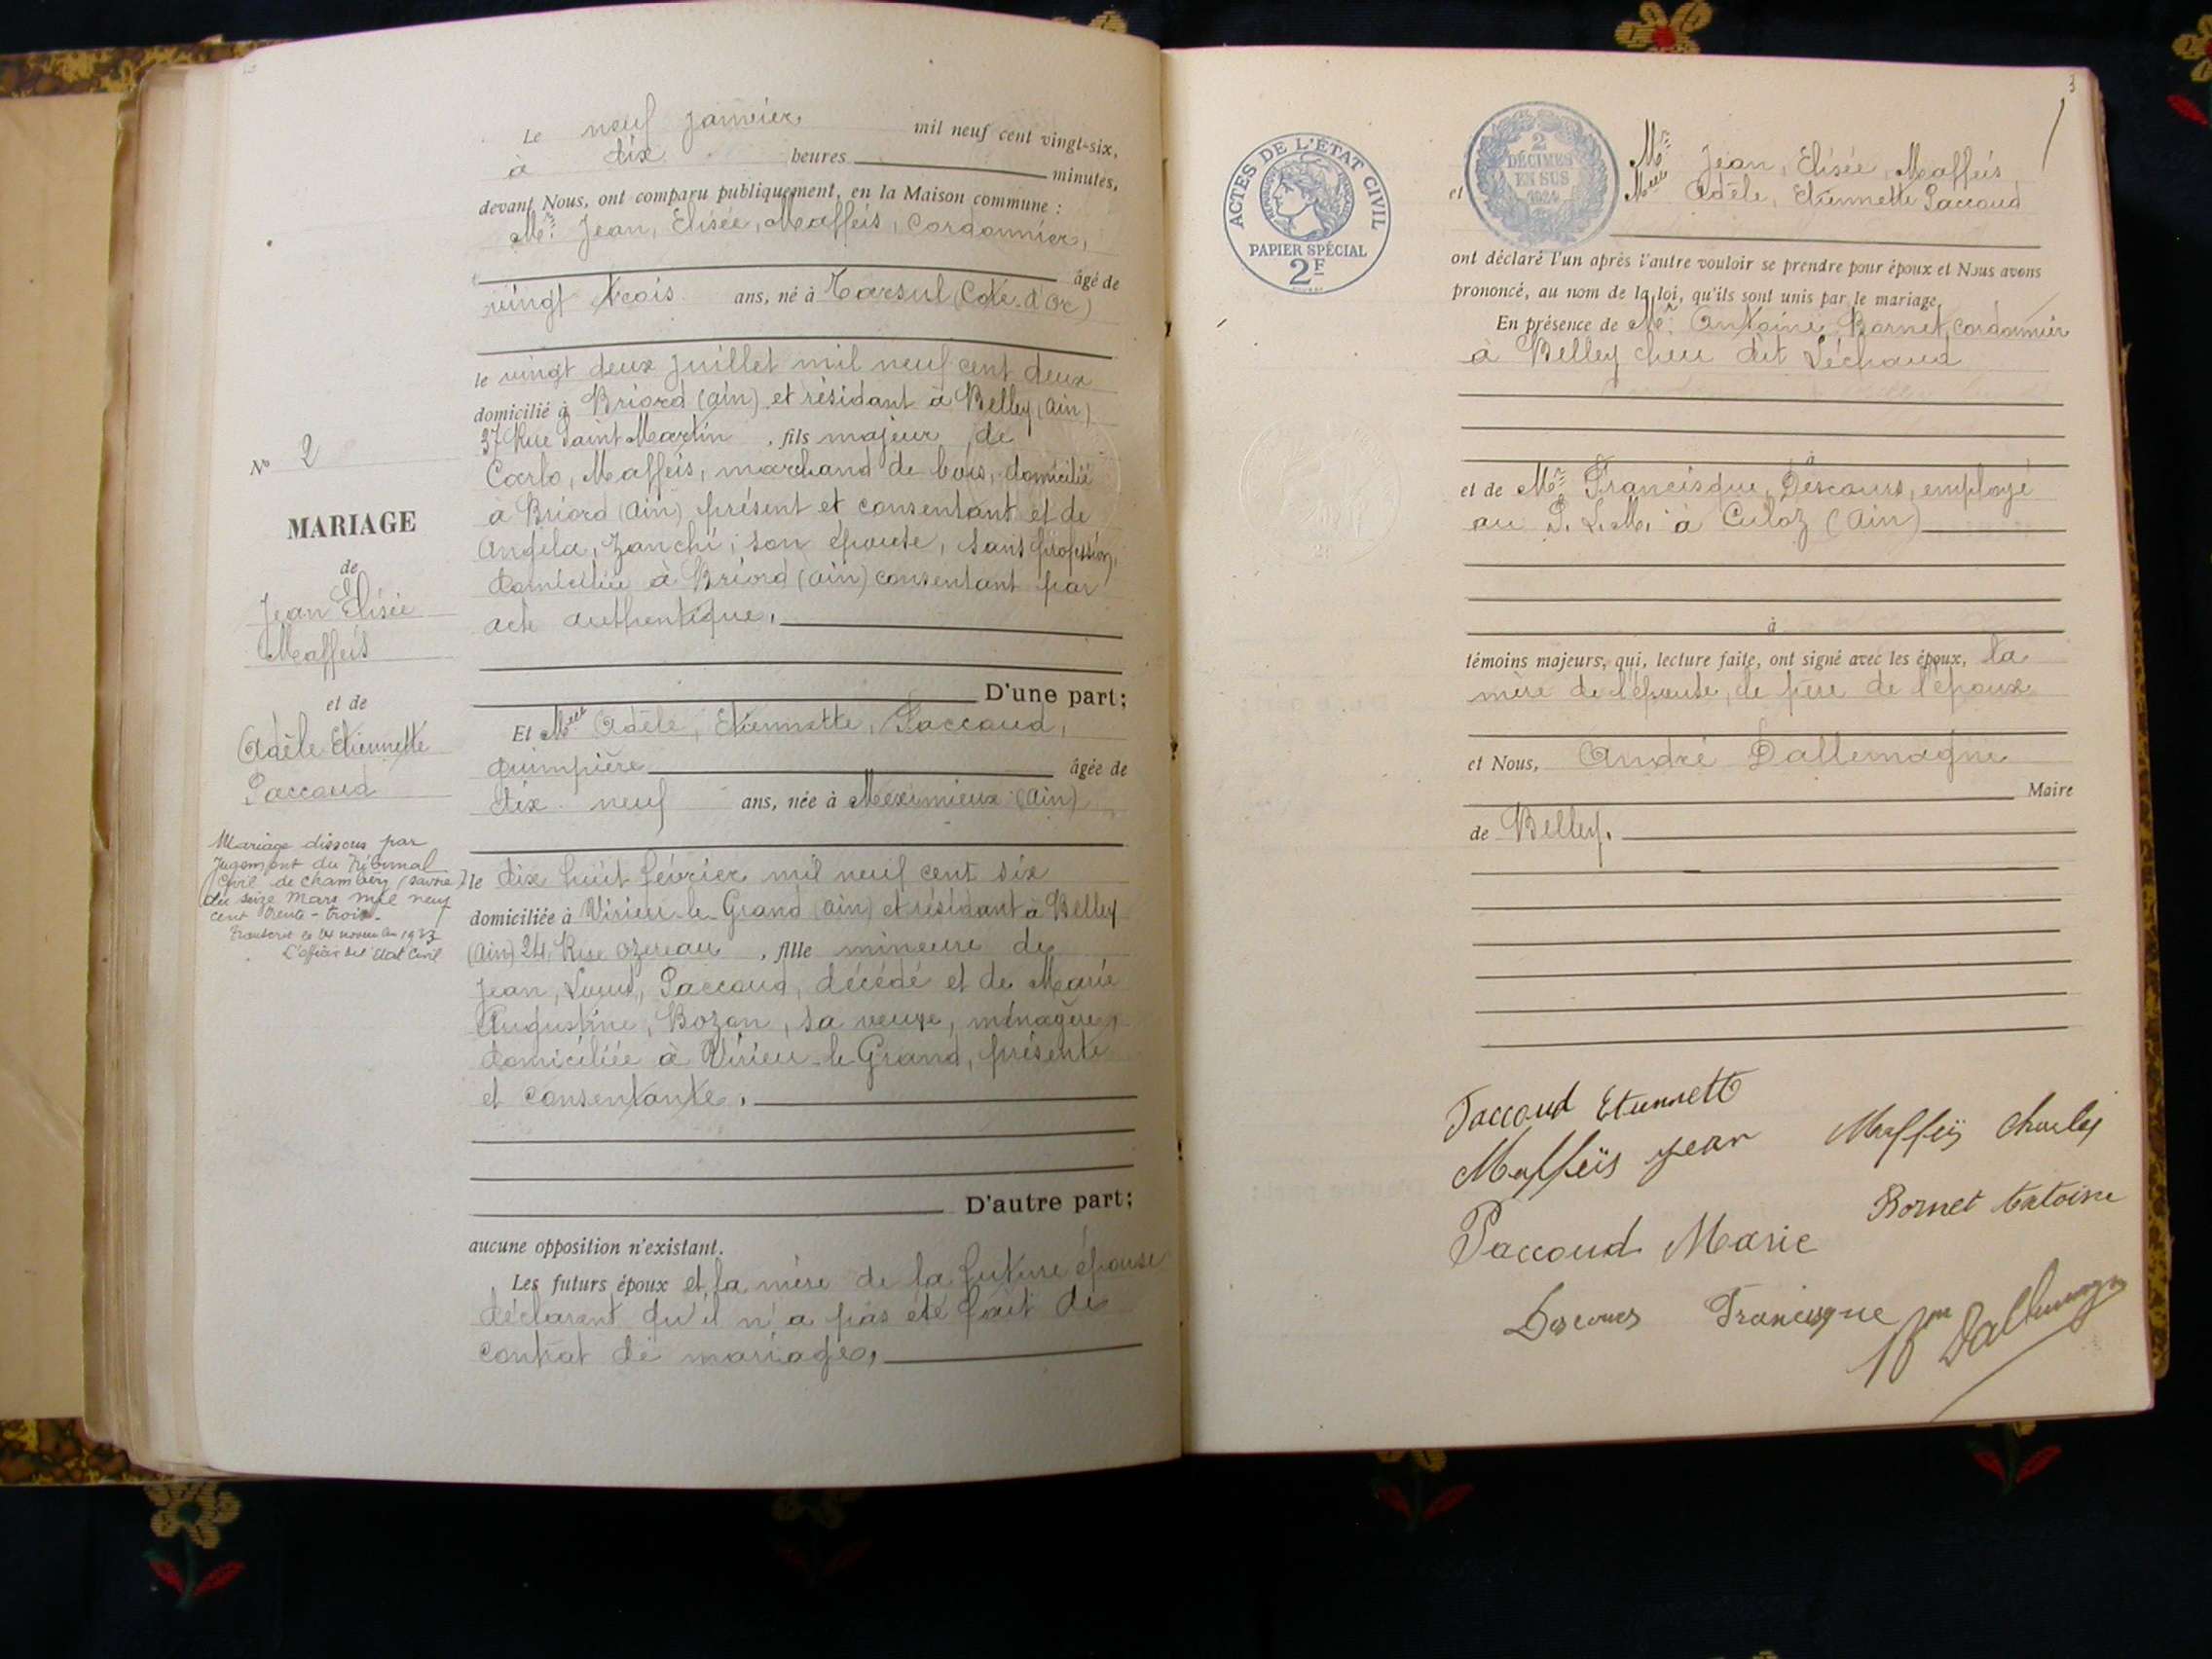 Le neuf janvier mil neuf cent vingt-six,
à dix heures minutes,
devant Nous, ont comparu publiquement, en la Maison commune :
Mr. Jean, Elisée, Maffeis, cordonnier,
âgé de
vingt trois ans, né à Tarsul (Côte-d'Or)
le vingt deux juillet mil neuf cent deux
domicilié à Briord (Ain) et résidant à Belley (Ain)
37 Rue Saint Martin, fils majeur de
Carlo, Maffeis, marchand de bois, domicilié
à Briord (Ain) présent et consentant et de
Angela, Zanchi, son épouse, sans profession,
domiciliée à Briord (Ain) consentant par
acte authentique.
D'une part;
Et Melle Adèle, Etiennette, Paccoud,
guimpière âgée de
dix neuf ans, née à Meximieux (Ain)
le dix huit février mil neuf cent six
domiciliée à Virieu-le-Grand (Ain) et résidant à Belley
(Ain) 24 Rue , fille mineure de
Jean, Paccoud, décédé et de Marie
Augustine, Bozon, sa veuve, ménagère,
domiciliée à Virieu-le-Grand, présente
et consentante.
D'autre part;
aucune opposition n'existant.
Les futurs époux et la mère de la future épouse
déclarent qu'il n'a pas été fait de
contrat de mariage.
No 2
MARIAGE
de
Jean Elisée
Maffeis
et de
Adèle Etiennette
Paccoud
Mariage dissous par
Jugement du Tribunal
Civil de Chambéry (Savoie)
du seize Mars mil neuf
cent trente-trois.
Transcrit le novembre 1933
L'officier de l'Etat Civil
3
ACTES DE L'ÉTAT CIVIL
PAPIER SPÉCIAL
2F
2
DÉCIMES
EN SUS
1924
et Mr. Jean, Elisée, Maffeis
Melle Adèle, Etiennette Paccoud
ont déclaré l'un après l'autre vouloir se prendre pour époux et Nous avons
prononcé, au nom de la loi, qu'ils sont unis par le mariage.
En présence de Mr. Antoine Bornet, cordonnier
à Belley
à
et de Mr. Francisque, Descours, employé
au P. L. M. à Culoz (Ain)
à
témoins majeurs, qui, lecture faite, ont signé avec les époux, la
mère de l'épouse, le père de l'époux
et Nous, André Dallemagne
Maire
de Belley.
Paccoud Etiennette
Maffeïs Jean
Maffeïs Charles
Bornet Antoine
Paccoud Marie
Descours Francisque
Dallemagne